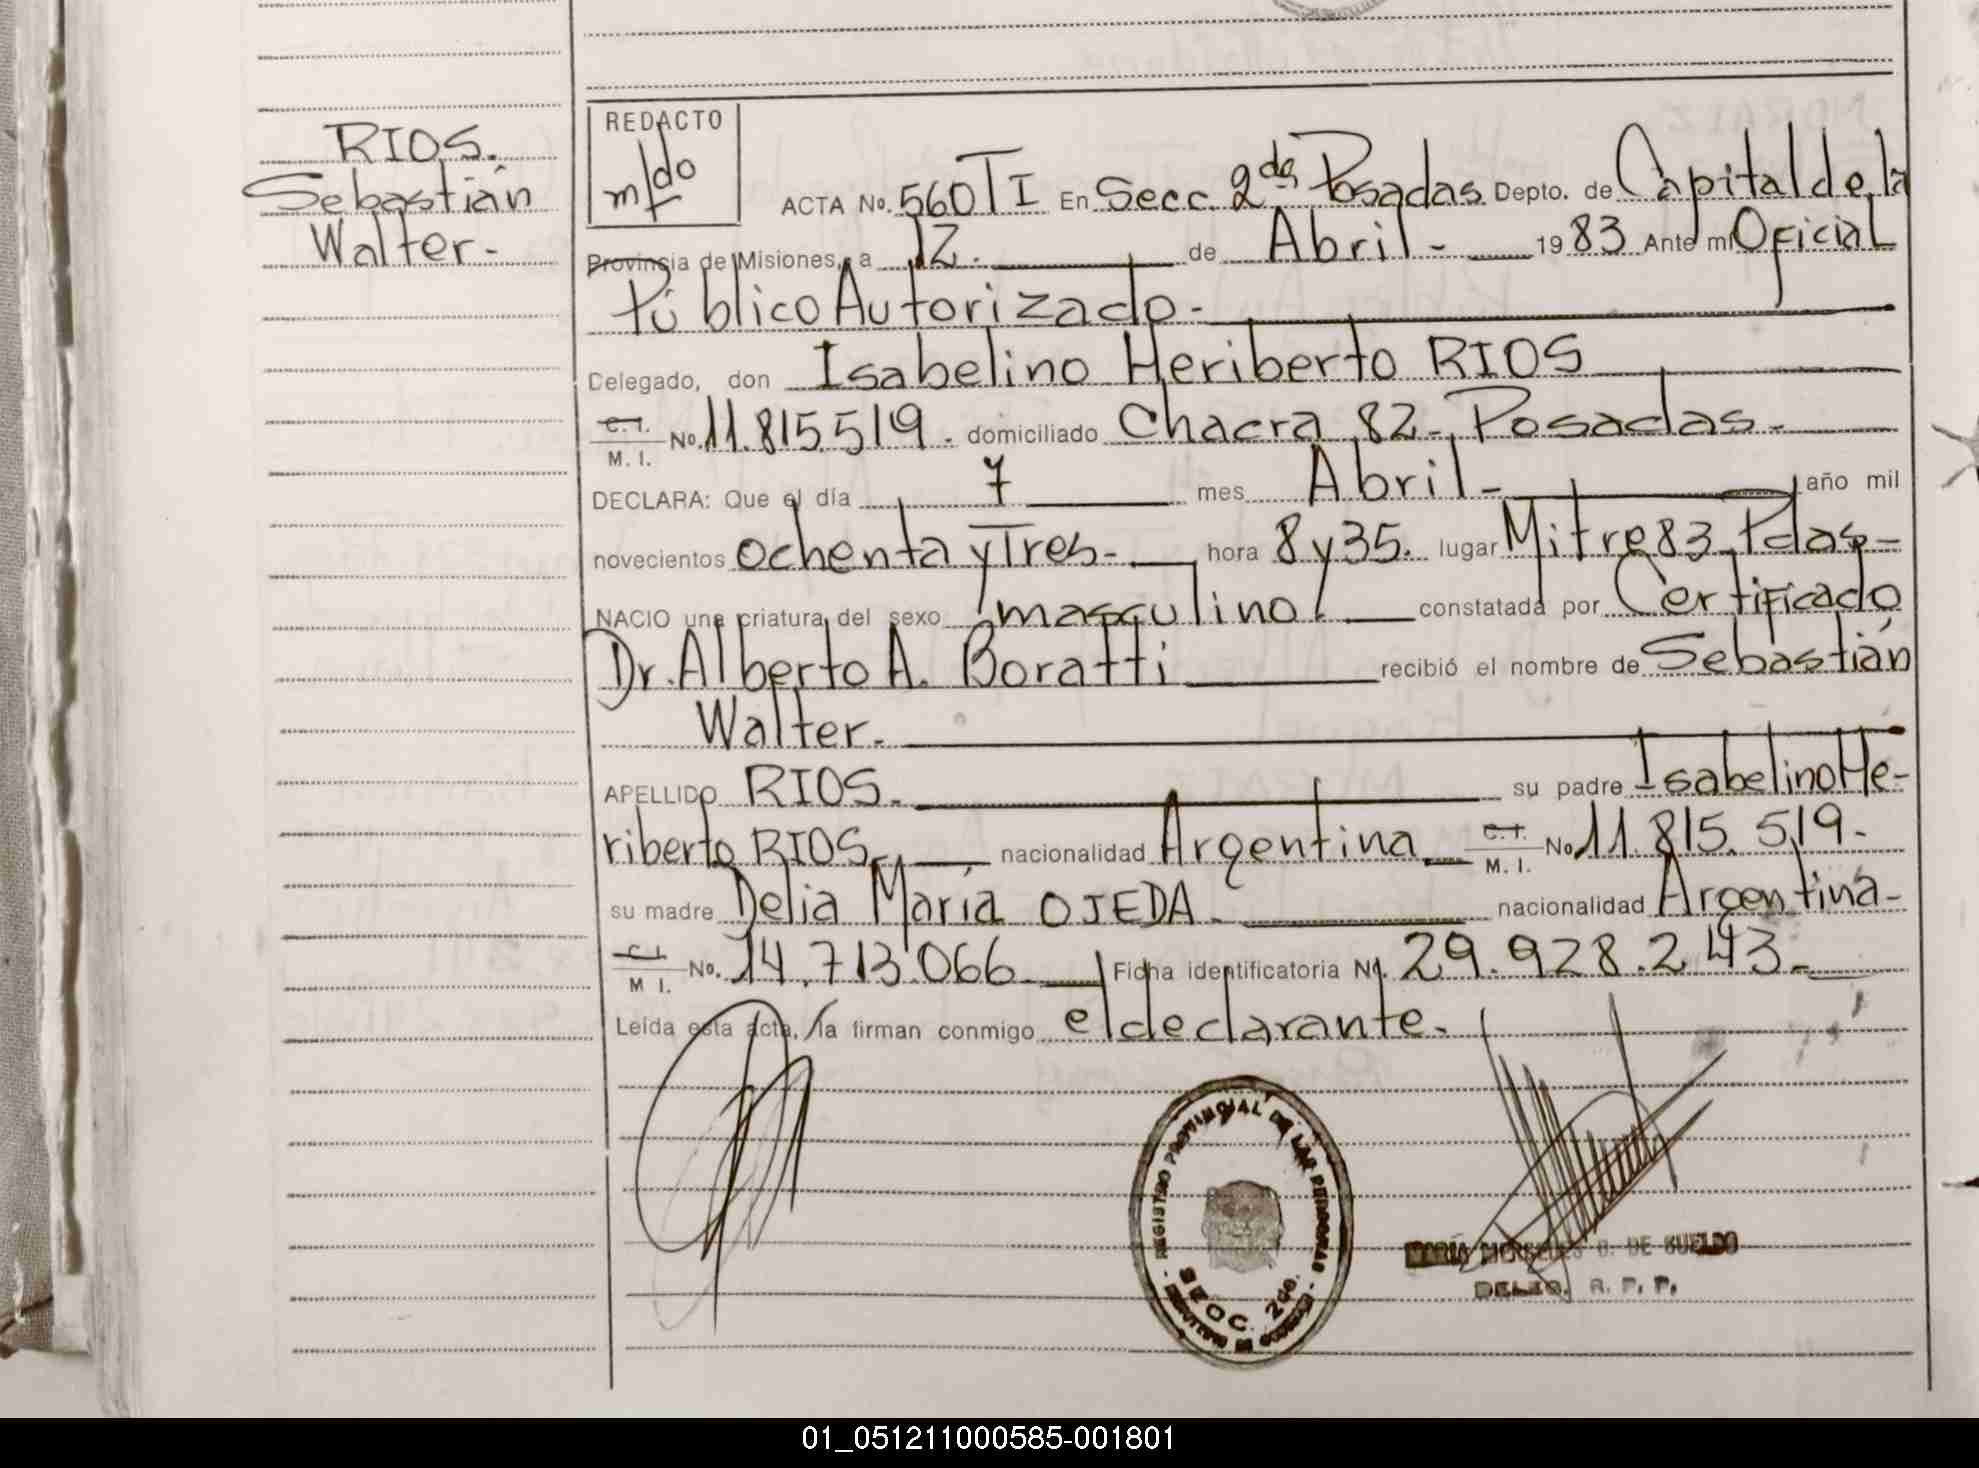 RIOS.
Sebastián
Walter-
REDACTO
ACTA No. 560 T I En Secc. 2da Posadas Depto. de Capital de la
Provincia de Misiones, a 12. de Abril - 1983 Ante mi Oficial
Público Autorizado -
Delegado, don Isabelino Heriberto RIOS
C.I.
M. I. No. 11.815.519. domiciliado Chacra 82 - Posadas -
DECLARA: Que el día 7 mes Abril - año mil
novecientos ochenta y Tres - hora 8 y 35. lugar Mitre 83 Pdas -
NACIO una criatura del sexo masculino constatada por Certificado
Dr. Alberto A. Boratti recibió el nombre de Sebastián
Walter -
APELLIDO RIOS. su padre Isabelino He-
riberto RIOS. nacionalidad Argentina C.I.
M. I. No. 11.815.519 -
su madre Delia María OJEDA - nacionalidad Argentina -
C.I.
M I. No. 14.713.066 Ficha identificatoria No. 29.928.243 -
Leída esta acta, la firman conmigo el declarante -
REGISTRO PROVINCIAL DE LAS PERSONAS
SECC. 2da.
DE SUELDO
DELEG. R. P. P.
01_051211000585-001801